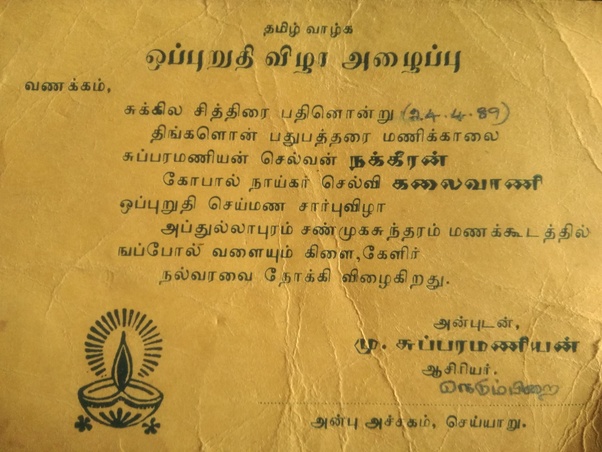 தமிழ் வாழ்க
ஒப்புறுதி விழா அழைப்பு
வணக்கம்,
சுக்கில சித்திரை பதினொன்று (24.4.89)
திங்களொன் பதுபத்தரை மணிக்காலை
சுப்பரமணியன் செல்வன் நக்கீரன்
கோபால் நாய்கர் செல்வி கலைவாணி
ஒப்புறுதி செய்மண சார்புவிழா
அப்துல்லாபுரம் சண்முகசுந்தரம் மணக்கூடத்தில்
ஙப்போல் வளையும் கிளை,கேளிர்
நல்வரவை நோக்கி விழைகிறது.
அன்புடன்,
மு. சுப்பரமணியன்
ஆசிரியர்.
நெடும்பிறை
அன்பு அச்சகம், செய்யாறு.